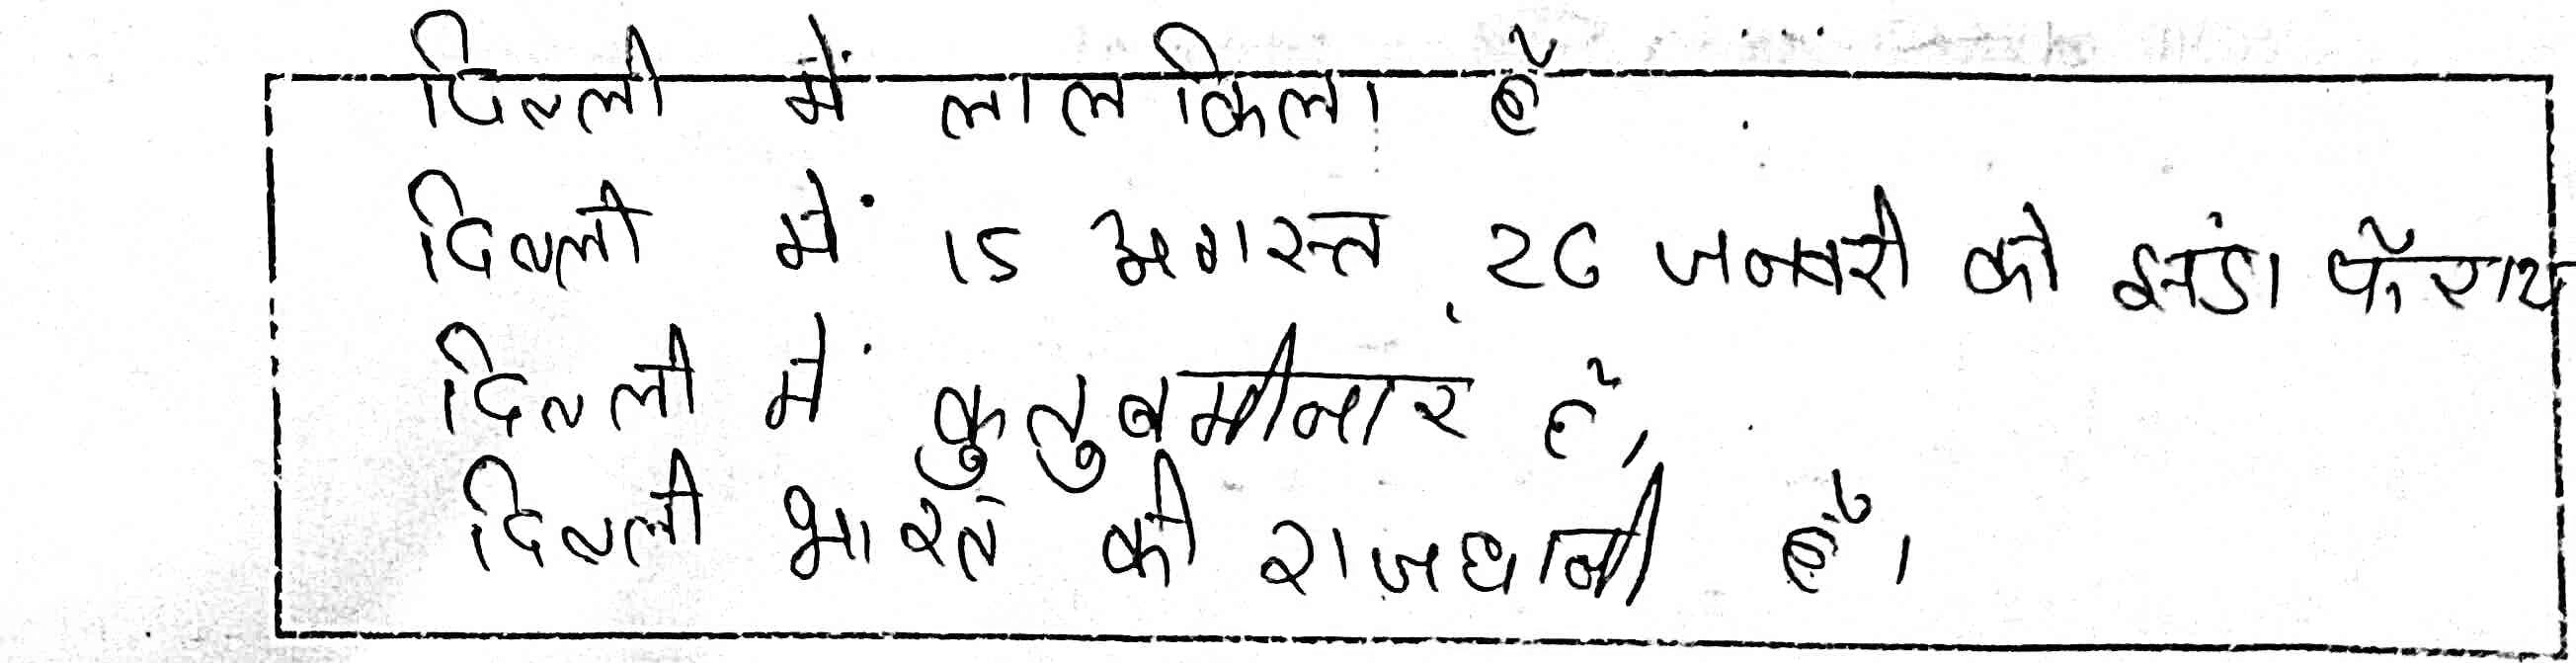 दिल्ली में लाल किला हैं
दिल्ली में 15 अगस्त, 26 जनवरी को झंडा फैराय
दिल्ली में कुतुबमीनार हैं,
दिल्ली भारत की राजधानी हैं।